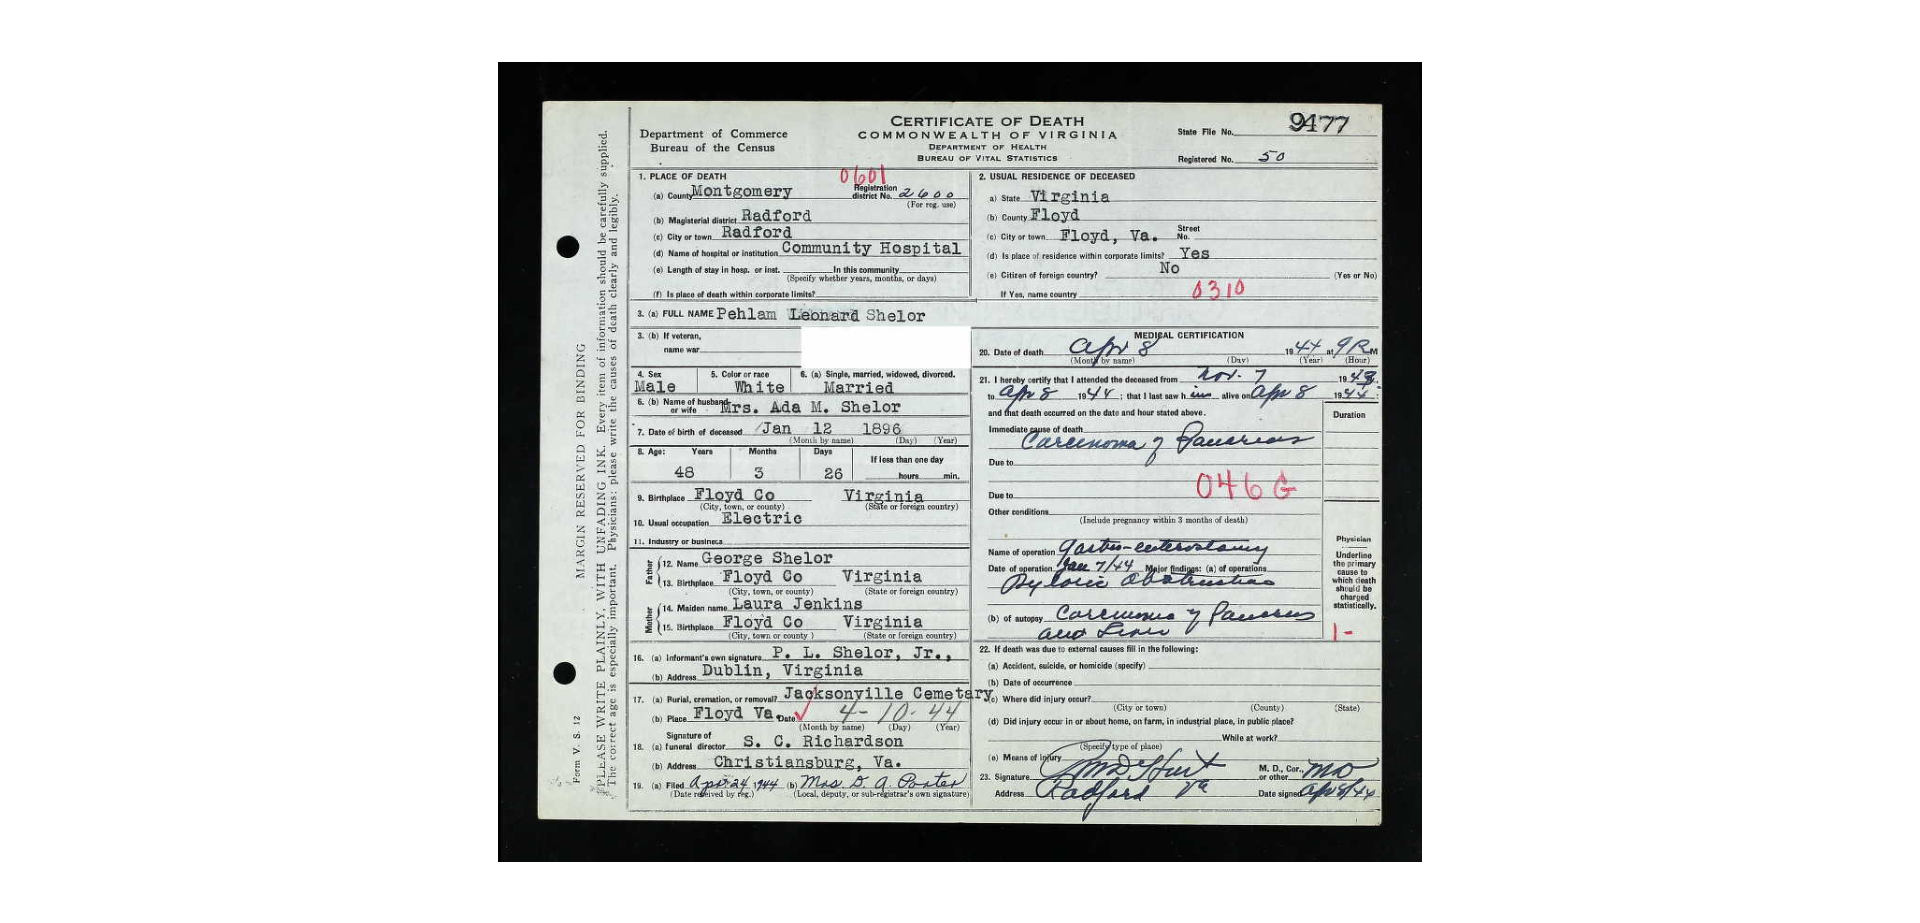 CERTIFICATE OF DEATH
COMMONWEALTH OF VIRGINIA
DEPARTMENT OF HEALTH
BUREAU OF VITAL STATISTICS
Department of Commerce
Bureau of the Census
State File No. 9477
Registered No. 50
1. PLACE OF DEATH
0601
(a) County Montgomery Registration district No. 2600
(For reg. use)
(b) Magisterial district Radford
(c) City or town Radford
(d) Name of hospital or institution Community Hospital
(e) Length of stay in hosp. or inst. In this community
(Specify whether years, months, or days)
(f) Is place of death within corporate limits?
2. USUAL RESIDENCE OF DECEASED
a) State Virginia
(b) County Floyd
(c) City or town Floyd, Va. Street No.
(d) Is place of residence within corporate limits? Yes
(e) Citizen of foreign country? No (Yes or No)
If Yes, name country 0310
3. (a) FULL NAME Pehlam Leonard Shelor
3. (b) If veteran,
name war
4. Sex 5. Color or race 6. (a) Single, married, widowed, divorced.
Male White Married
6. (b) Name of husband or wife Mrs. Ada M. Shelor
7. Date of birth of deceased Jan 12 1896
(Month by name) (Day) (Year)
8. Age: Years Months Days If less than one day
48 3 26 hours min.
9. Birthplace Floyd Co Virginia
(City, town, or county) (State or foreign country)
10. Usual occupation Electric
11. Industry or business
Father
12. Name George Shelor
13. Birthplace Floyd Co Virginia
(City, town, or county) (State or foreign country)
Mother
14. Maiden name Laura Jenkins
15. Birthplace Floyd Co Virginia
(City, town or county) (State or foreign country)
16. (a) Informant's own signature P. L. Shelor, Jr.,
(b) Address Dublin, Virginia
17. (a) Burial, cremation, or removal? Jacksonville Cemetary
(b) Place Floyd Va. Date 4-10-44
(Month by name) (Day) (Year)
Signature of
18. (a) funeral director S. C. Richardson
(b) Address Christiansburg, Va.
19. (a) Filed Apr 24 1944 (b) Mrs D. A. Porter
(Date received by reg.) (Local, deputy, or sub-registrar's own signature)
MEDICAL CERTIFICATION
20. Date of death Apr 8 1944 at 9 P M
(Month by name) (Day) (Year) (Hour)
21. I hereby certify that I attended the deceased from Nov. 7 1943
to Apr 8 1944; that I last saw him alive on Apr 8 1944;
and that death occurred on the date and hour stated above.
Duration
Immediate cause of death
Carcinoma of Pancreas
Due to
046G
Due to
Other conditions
(Include pregnancy within 3 months of death)
Name of operation Gastro-enterostomy
Date of operation Jan 7/44 Major findings: (a) of operations
Pyloric obstruction
(b) of autopsy Carcinoma of Pancreas
and Liver
Physician
Underline
the primary
cause to
which death
should be
charged
statistically.
1-
22. If death was due to external causes fill in the following:
(a) Accident, suicide, or homicide (specify)
(b) Date of occurrence
(c) Where did injury occur?
(City or town) (County) (State)
(d) Did injury occur in or about home, on farm, in industrial place, in public place?
While at work?
(Specify type of place)
(e) Means of injury
23. Signature M. D., Cor., or other MD
Address Radford Va Date signed Apr 8/44
Form V. S. 12
MARGIN RESERVED FOR BINDING
PLEASE WRITE PLAINLY, WITH UNFADING INK. Every item of information should be carefully supplied.
The correct age is especially important. Physicians: please write the causes of death clearly and legibly.